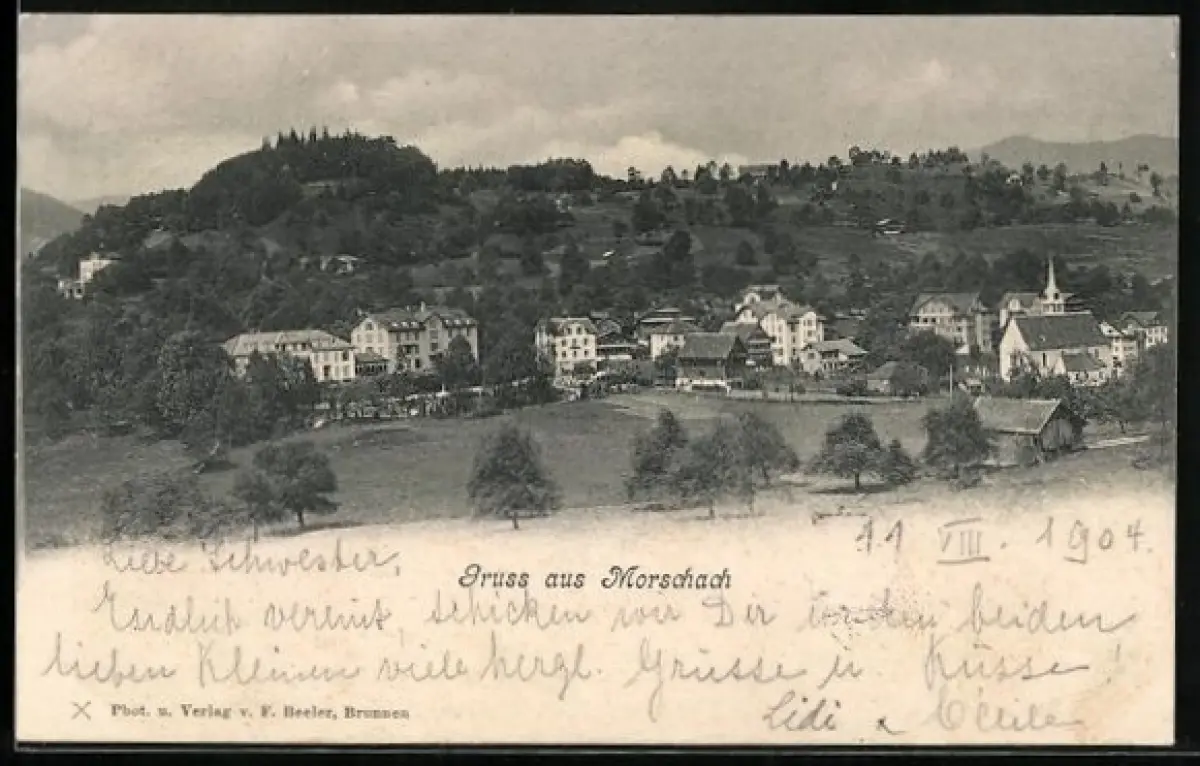 11 VIII. 1904.
Liebe Schwester,
Gruss aus Morschach
Endlich vereint, schicken wir Dir u. den beiden
lieben Kleinen viele herzl. Grüsse u. Küsse!
× Phot. u. Verlag v. F. Beeler, Brunnen
Lidi